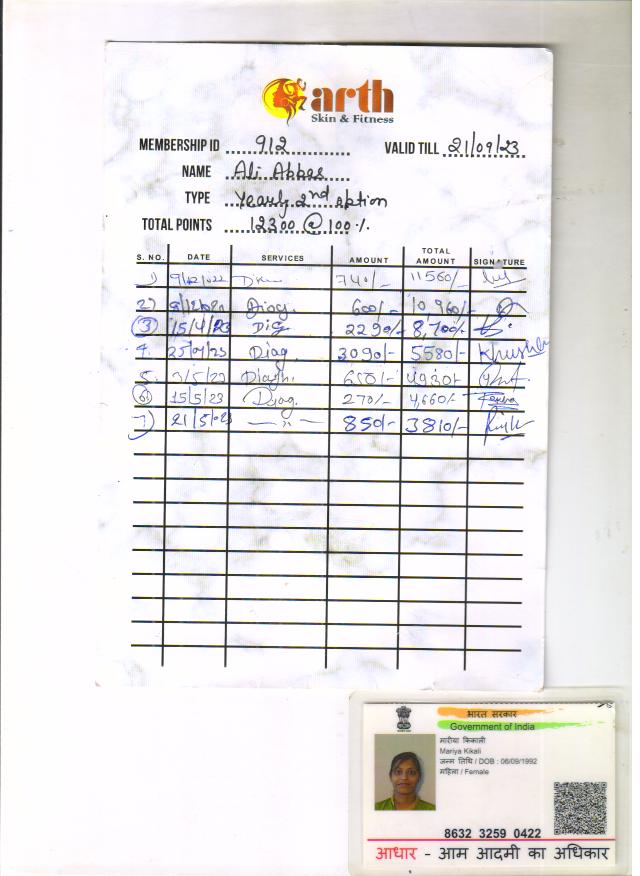 arth
Skin & Fitness
MEMBERSHIP ID 912 VALID TILL 21/09/23
NAME Ali Abbas
TYPE Yearly 2nd option
TOTAL POINTS 12300 @ 100%
S. NO. DATE SERVICES AMOUNT TOTAL AMOUNT SIGNATURE
1) 9/12/022 740/- 11560/-
2) 600/- 10,960/-
3) 15/4/23 2290/- 8,700/-
4. Diag. 3090/- 5580/- Khushbu
5. 3/5/23
6) 15/5/23 270/- 4,660/-
7) 21/5/023 —〃— 850/- 3810/-
भारत सरकार
Government of India
मारीया किकाली
Mariya Kikali
जन्म तिथि / DOB : 06/09/1992
महिला / Female
8632 3259 0422
आधार - आम आदमी का अधिकार